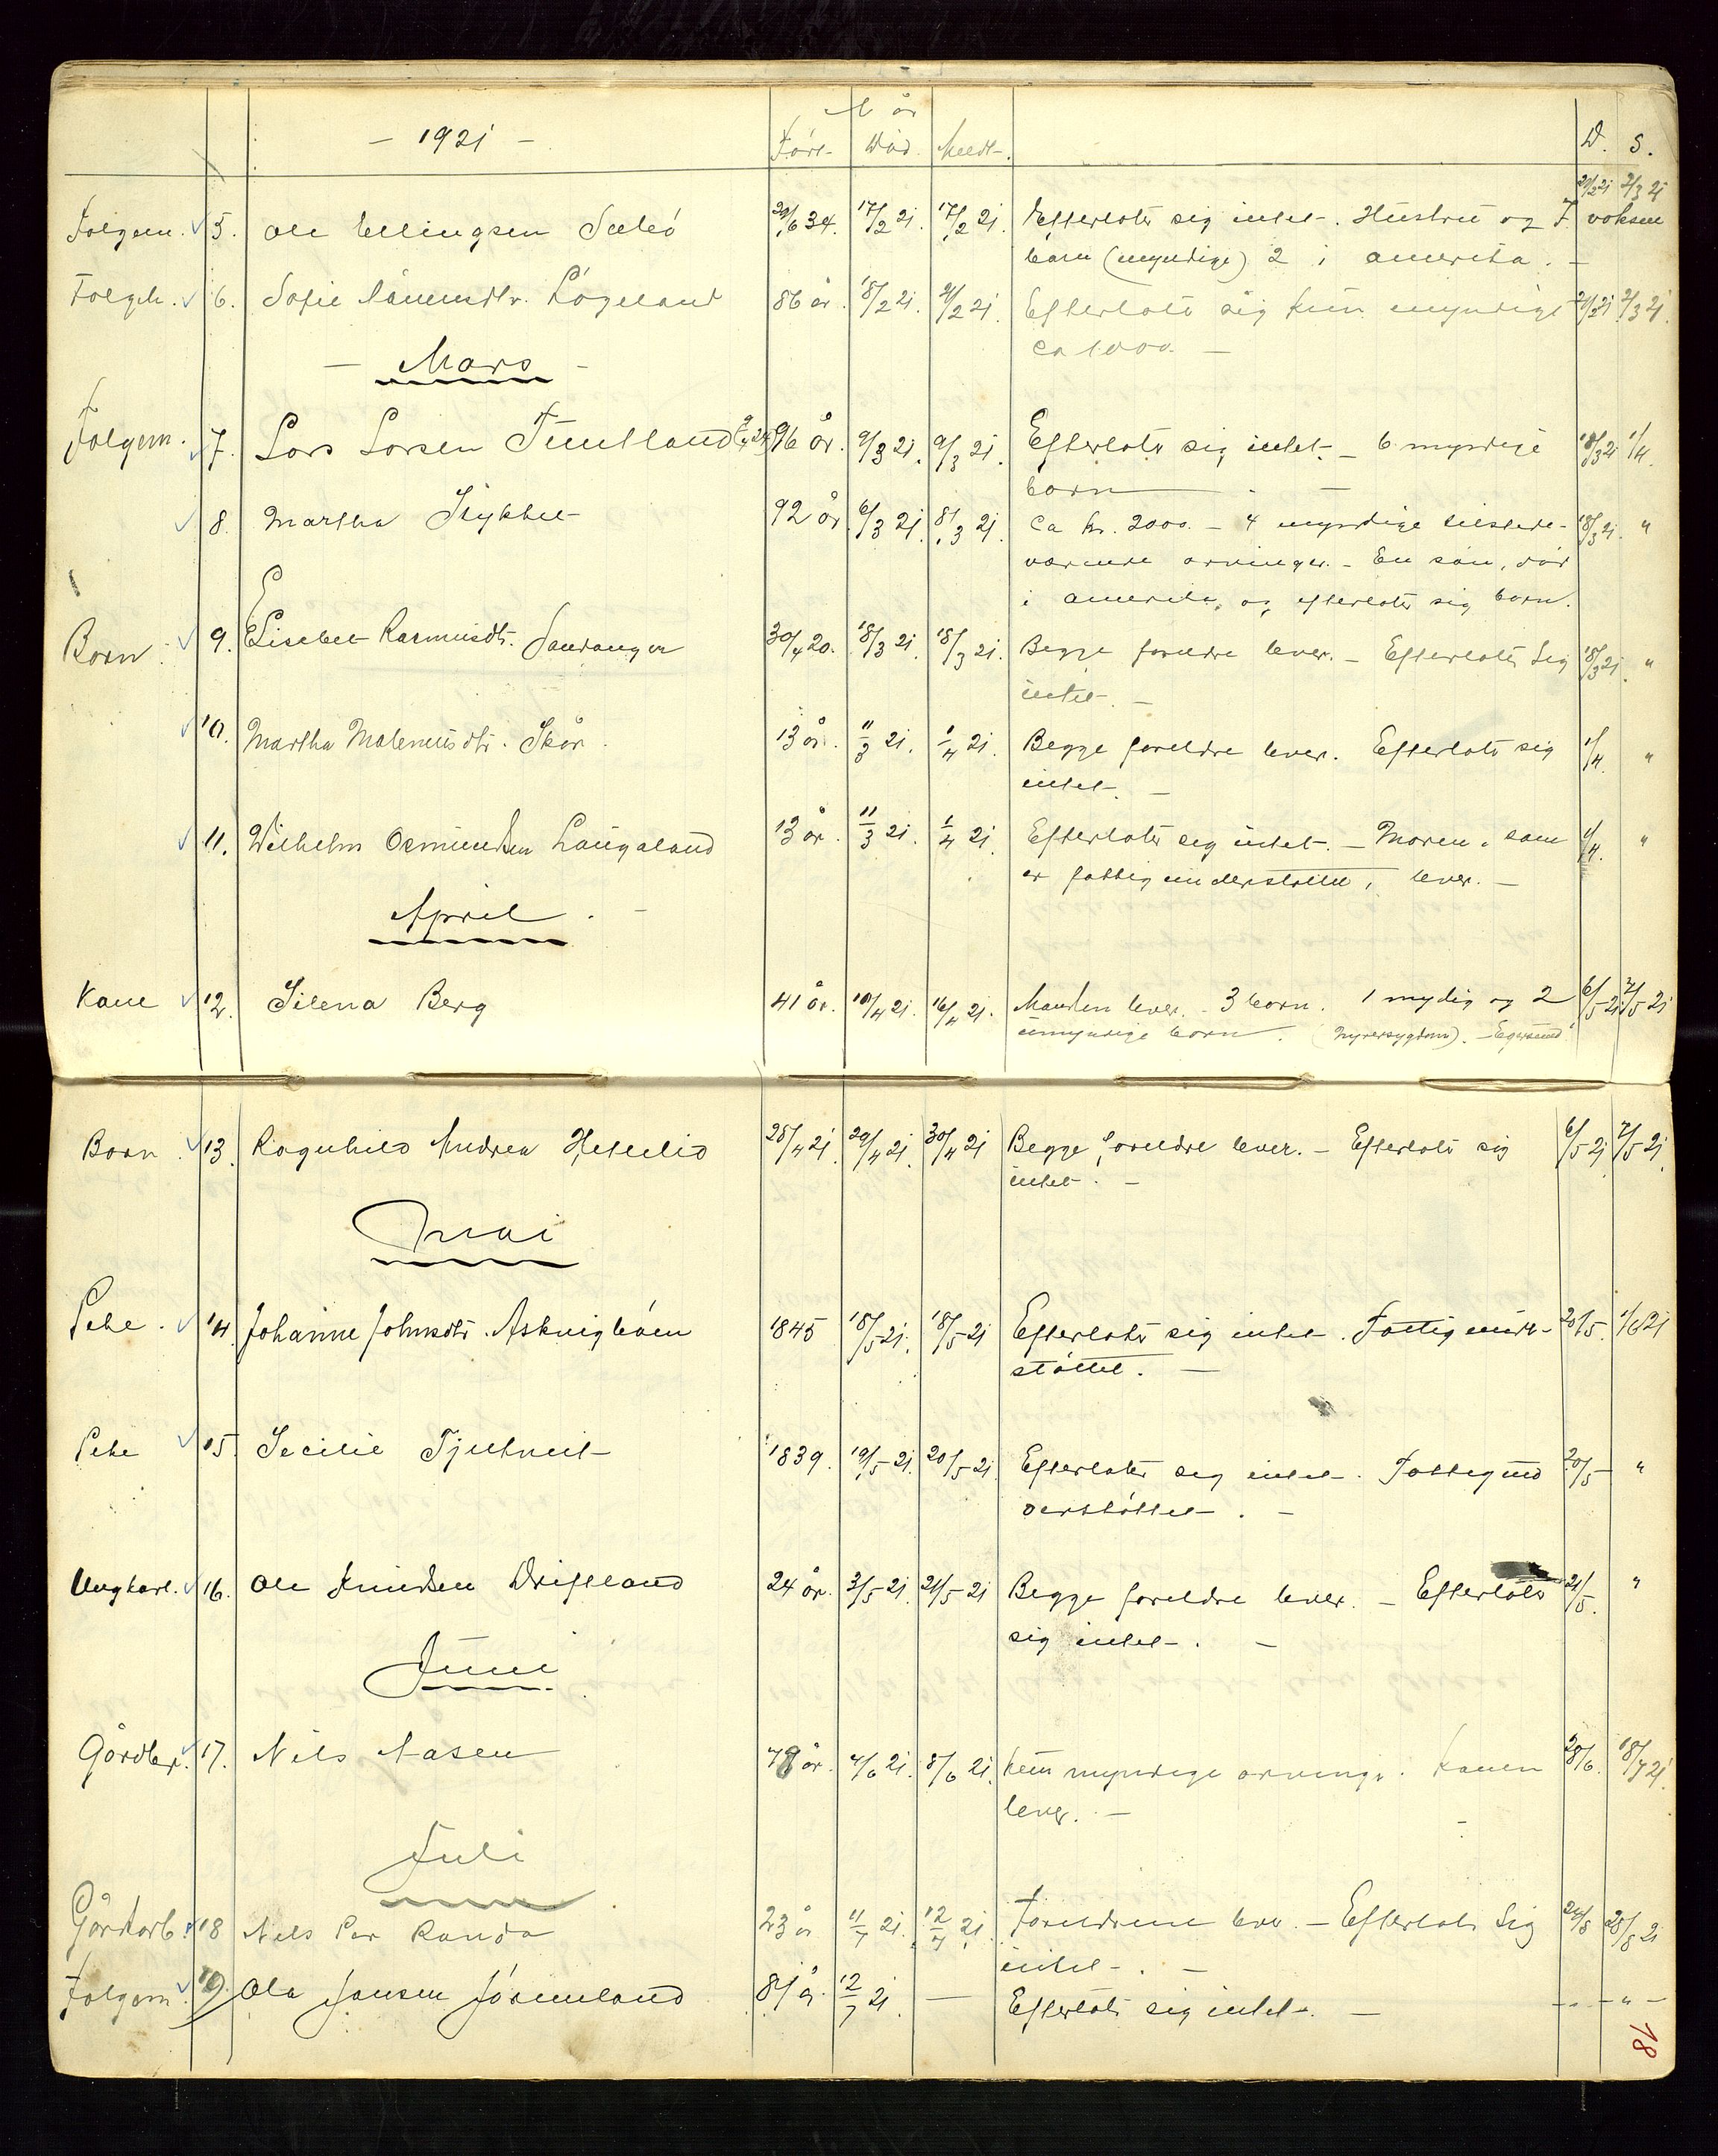 - 1921 -
år
Född. Död. Meldt. D. S.
Folgem. 5. Ole Ellingsen Sæbö 29/6 34. 17/2 21. 17/2 21. Efterlater sig intet. Hustru og 7 voksen 21/2 21 2/3 21
børn (myndige) 2 i amerika. -
Folgek. 6. Sofie Løgeland 86 år. 18/2 21. 21/2 21. Efterlater sig kun myndige 21/2 21 2/3 21.
ca 1000. -
- Mars -
Folgem. 7. Lars Larsen Tuntland 96 år. 9/3 21. 9/3 21. Efterlater sig intet. - 6 myndige 18/3 21 1/4.
børn - -
8. Martha Stykket 92 år 6/3 21. 8/3 21. Ca kr. 2000. - 4 myndige tilstede- 18/3 21. "
værende arvinger. - En søn, død
i amerika, og efterlater sig børn.
Barn. 9. Lisabet Rasmusdtr. Sandanger 30/4 20. 18/3 21. 18/3 21. Begge foreldre lever. - Efterlater Sig 18/3 21. "
intet. -
10. Martha Malenusdtr. Skår. 13 år. 11/3 21. 1/4 21. Begge foreldre lever. Efterlater sig 1/4. "
intet. -
11. Wilhelm Osmundsen Laugaland 13 år. 11/3 21. 1/4 21. Efterlater sig intet. - Moren, som 1/4. "
er fattigunderstøttet, lever. -
April. -
Kone 12. Silena Berg 41 år. 10/4 21. 16/4 21. Manden lever. - 3 børn. 1 mydig og 2 6/5 21 7/5 21
umyndige børn. (Nyresygdom). - Egersund
Barn 13. Ragnhild Andrea Hetlelid 28/4 21. 29/4 21. 30/4 21 Begge foreldre lever. - Efterlater sig 6/5 21 7/5 21.
intet. -
Mai
Pike. 14. Johanne Johnsdtr. 1845 18/5 21. 18/5 21 Efterlater sig intet. Fattigunder- 20/5. 1/6 21
støttet. -
Pike 15. Secilie Tjetveit 1839. 19/5 21. 20/5 21. Efterlater sig intet. Fattigun 20/5 "
derstøttet. -
Ungkarl. 16. Ole Knudsen Driftland 24 år. 3/5 21. 21/5 21 Begge foreldre lever. - Efterlater 21/5. "
sig intet. -
Juni
Gårdbr. 17. Nils Aasen år. 4/6 21. 8/6 21. kun myndige arvinge. Konen 28/6. 18/7 21.
lever. -
Juli
Gårdarb. 18 Nils Per Randa 23 år 11/7 21. 12/7 21. Foreldrene lever. - Efterlater Sig 24/8 28/8 21
intet. -
Folgem. 19. Ola Jansen 81 år. 12/7 21. - Efterlater sig intet. - - " -
18